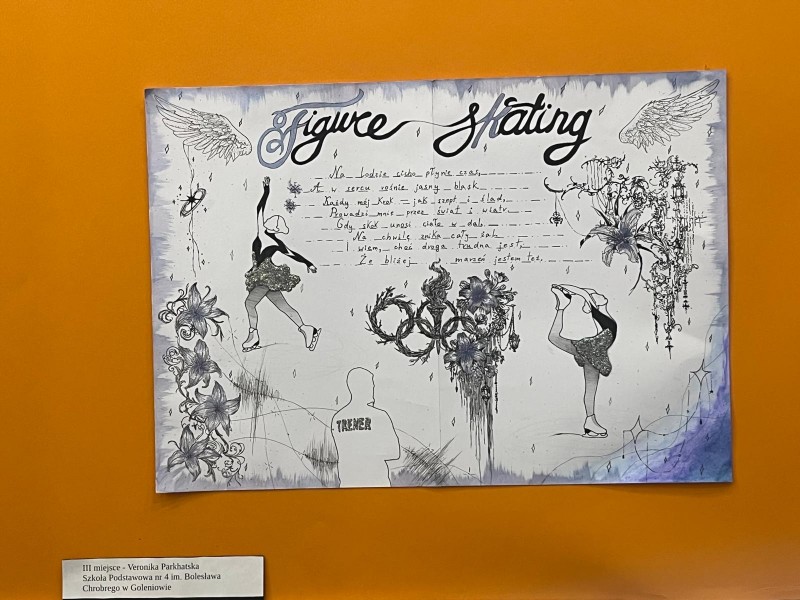 Figure skating
Na lodzie cicho płynie czas,
A w sercu rośnie jasny blask
Każdy mój krok - jak szept i ślad,
Prowadzi mnie przez świat i wiatr.
Gdy skok unosi ciało w dal,
Na chwilę znika cały żal.
I wiem, choć droga trudna jest,
Że bliżej marzeń jestem też.
TRENER
III miejsce - Veronika Parkhatska
Szkoła Podstawowa nr 4 im. Bolesława
Chrobrego w Goleniowie